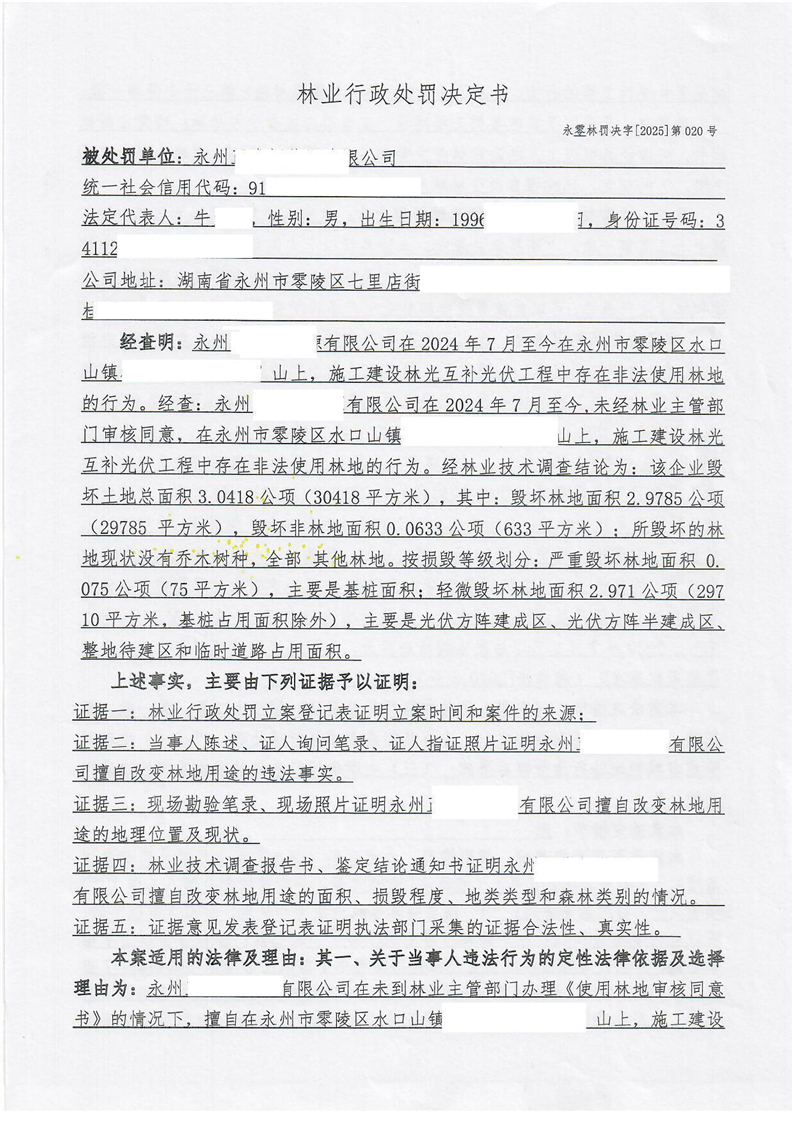 林业行政处罚决定书
永零林罚决字[2025]第 020 号
被处罚单位：永州 限公司
统一社会信用代码：91
法定代表人：牛 ，性别：男，出生日期：1996 日，身份证号码：3
4112
公司地址：湖南省永州市零陵区七里店街
经查明：永州 有限公司在 2024 年 7 月至今在永州市零陵区水口
山镇 山上，施工建设林光互补光伏工程中存在非法使用林地
的行为。经查：永州 有限公司在 2024 年 7 月至今,未经林业主管部
门审核同意，在永州市零陵区水口山镇 山上，施工建设林光
互补光伏工程中存在非法使用林地的行为。经林业技术调查结论为：该企业毁
坏土地总面积 3.0418 公项（30418 平方米），其中：毁坏林地面积 2.9785 公项
（29785 平方米），毁坏非林地面积 0.0633 公项（633 平方米）；所毁坏的林
地现状没有乔木树种，全部 其他林地。按损毁等级划分：严重毁坏林地面积 0.
075 公项（75 平方米），主要是基桩面积；轻微毁坏林地面积 2.971 公项（297
10 平方米，基桩占用面积除外），主要是光伏方阵建成区、光伏方阵半建成区、
整地待建区和临时道路占用面积。
上述事实，主要由下列证据予以证明：
证据一：林业行政处罚立案登记表证明立案时间和案件的来源；
证据二：当事人陈述、证人询问笔录、证人指证照片证明永州 有限公
司擅自改变林地用途的违法事实。
证据三：现场勘验笔录、现场照片证明永州 有限公司擅自改变林地用
途的地理位置及现状。
证据四：林业技术调查报告书、鉴定结论通知书证明永州
有限公司擅自改变林地用途的面积、损毁程度、地类类型和森林类别的情况。
证据五：证据意见发表登记表证明执法部门采集的证据合法性、真实性。
本案适用的法律及理由：其一、关于当事人违法行为的定性法律依据及选择
理由为：永州 有限公司在未到林业主管部门办理《使用林地审核同意
书》的情况下，擅自在永州市零陵区水口山镇 山上，施工建设